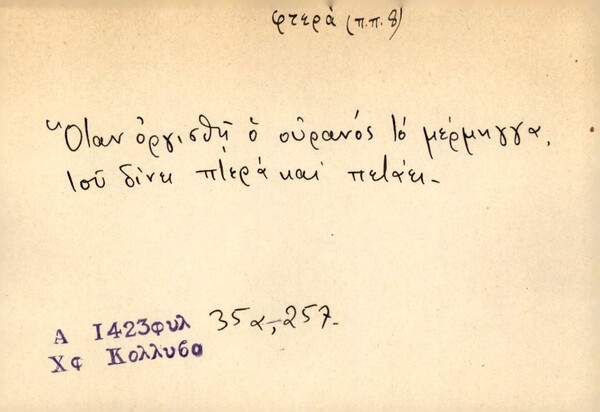 φτερὰ (π.π. 8)
"Ὅταν ὀργισθῆ ὁ οὐρανός τό μέρμηγγα,
τοῦ δίνει πτερά καί πετάει_
Α 1423φυλ 35α,257.
Χφ Κολλυβα